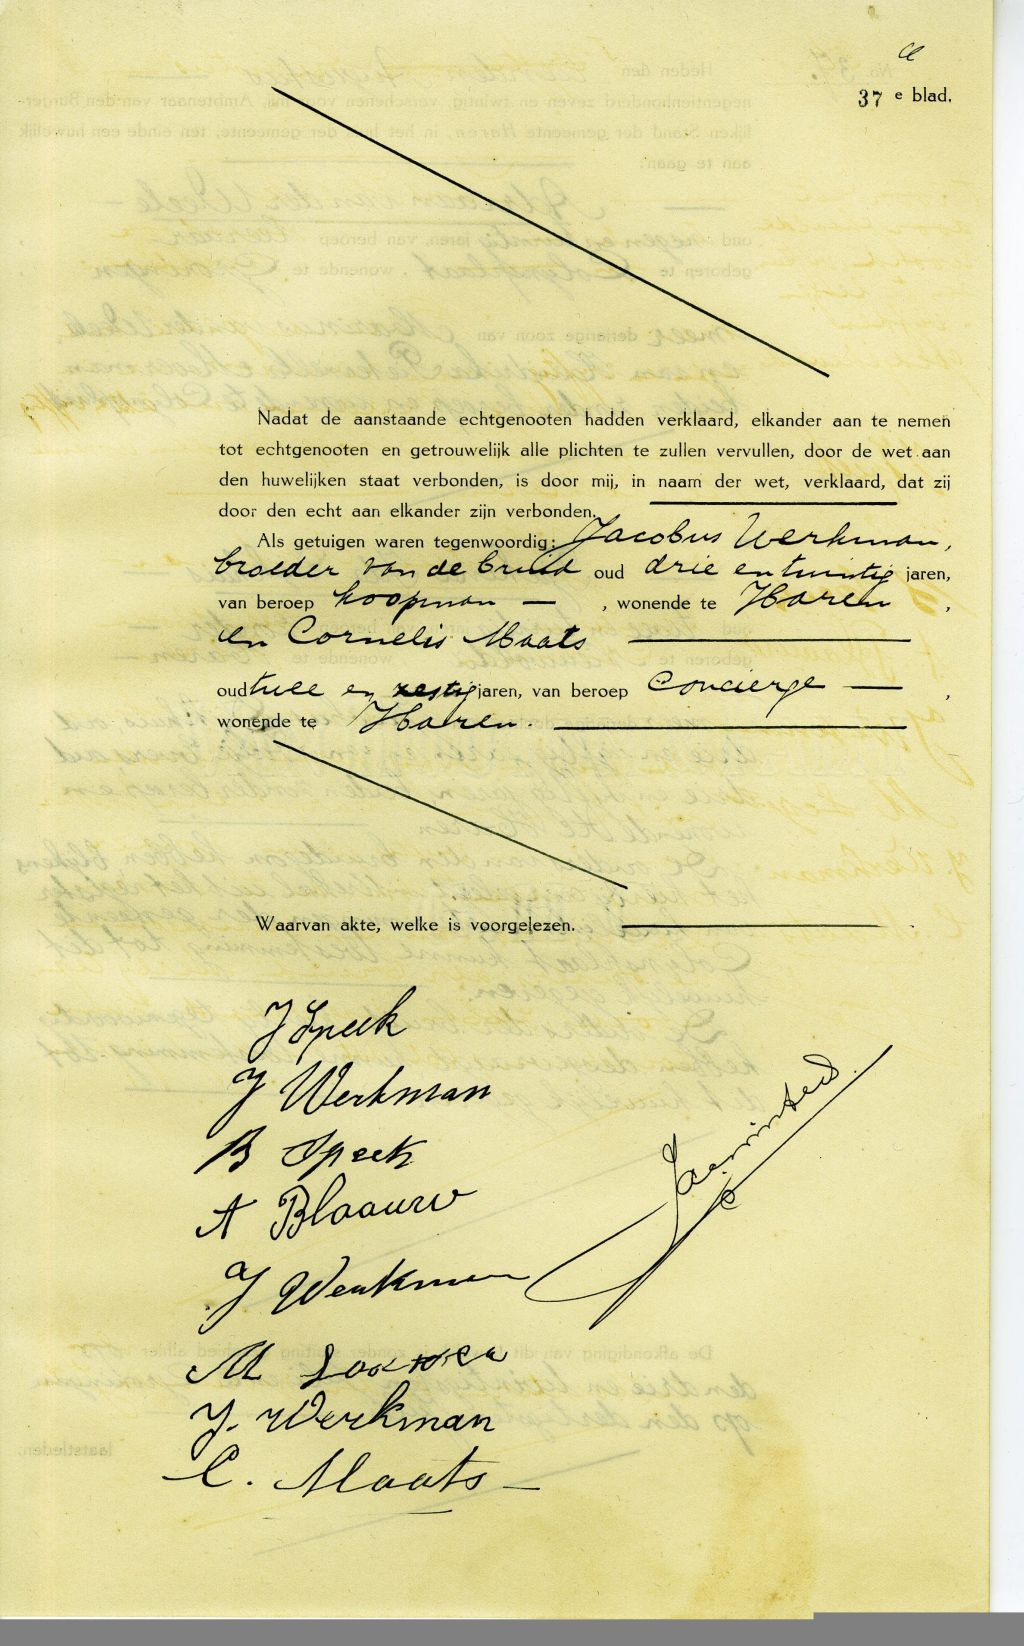 37 e blad.
Nadat de aanstaande echtgenooten hadden verklaard, elkander aan te nemen
tot echtgenooten en getrouwelijk alle plichten te zullen vervullen, door de wet aan
den huwelijken staat verbonden, is door mij, in naam der wet, verklaard, dat zij
door den echt aan elkander zijn verbonden.
Als getuigen waren tegenwoordig: Jacobus Werkman,
broeder van de bruid oud drie en twintig jaren,
van beroep koopman — , wonende te Haren ,
en Cornelis Maats
oud twee en zestig jaren, van beroep Concierge — ,
wonende te Haren.
Waarvan akte, welke is voorgelezen.
J Speek
J Werkman
B Speek
A Blaauw
J Werkman
M
J. Werkman
C. Maats